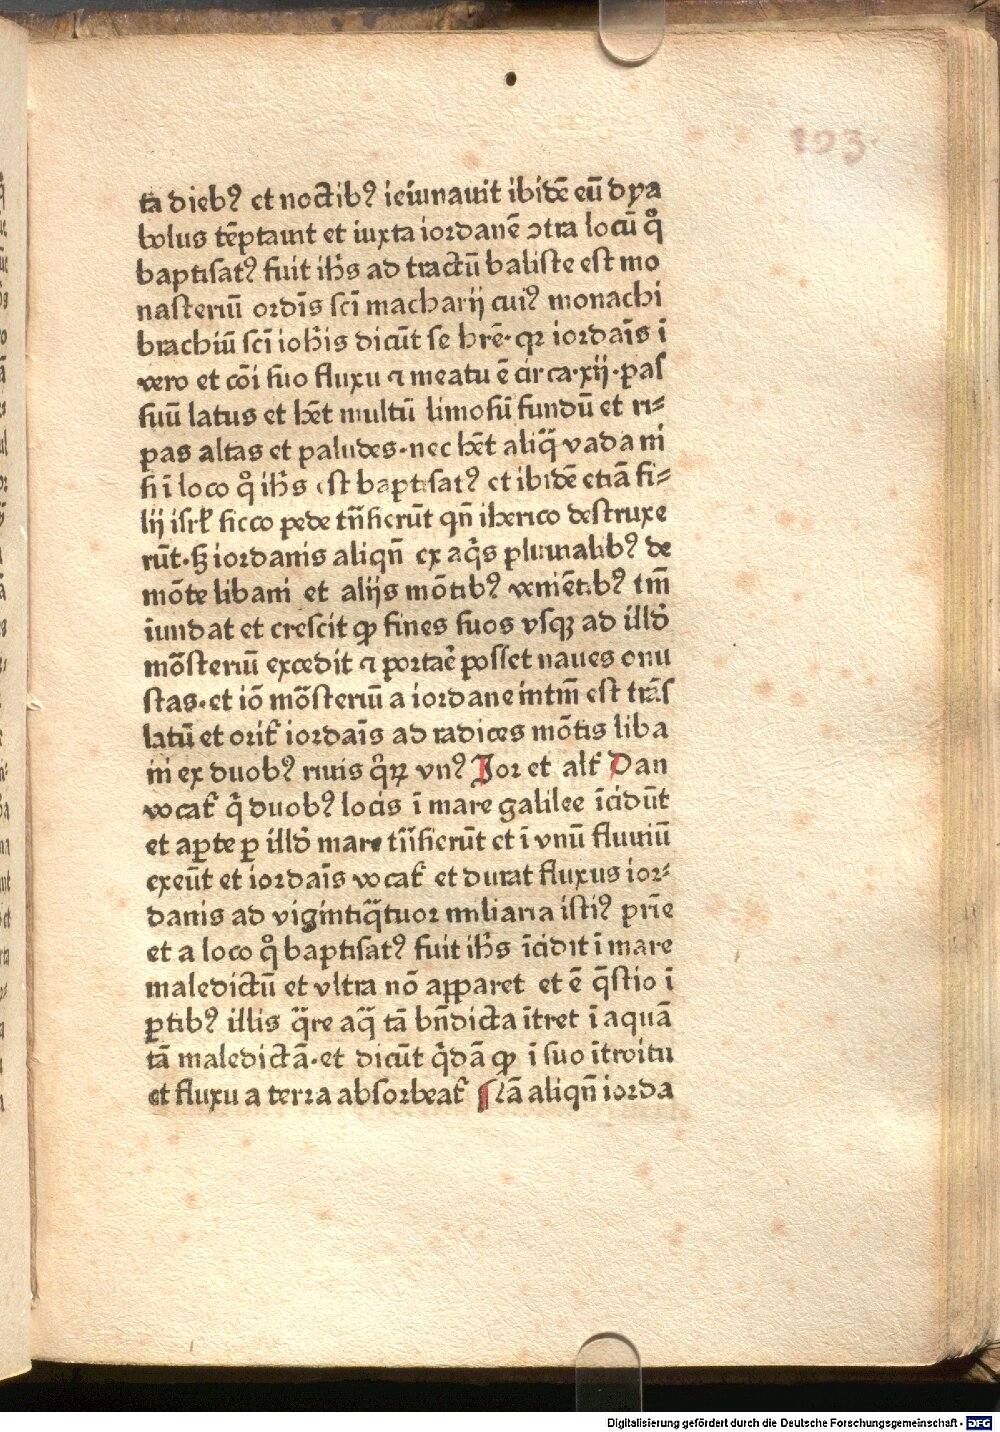 103.
ta diebꝰ et noctibꝰ ieiunauit ibidē eū dya
bolus tēptauit et iuxta iordanē ↄtra locū qͦ
baptisatꝰ fuit ih̄s ad tractū baliste est mo
nasteriū ordīs scī macharij cuiꝰ monachi
brachiū scī ioh̄is dicūt se hr̄e· qꝛ iordaīs ī
vero et cōi suo fluxu ⁊ meatu ē circa·xij·pas
suū latus et hēt multū limosū fundū et ri⸗
pas altas et paludes·nec hēt aliq̄ vada ni
si ī loco qͦ ih̄s est baptisatꝰ et ibidē etiā fi⸗
lij isrƚ sicco pede trāsierūt qn̄ iherico destruxe
rūt·sꝫ iordanis aliqn̄ ex aq̄s pluuialibꝰ de
mōte libani et alijs mōtibꝰ veniētibꝰ tm̄
īundat et crescit ꝙ fines suos vsqꝫ ad illd̓
mōsteriū excedit ⁊ portaē posset naues onu
stas·et iō mōsteriū a iordane intm̄ est trās
latū et orit᷑ iordaīs ad radices mōtis liba
ni ex duobꝰ riuis qͦꝝ vnꝰ Jor et alt᷑ Dan
vocat᷑ qͥ duobꝰ locis ī mare galilee īcidūt
et aꝑte ꝑ illd̓ mare trāsierūt et ī vnū fluuiū
exeūt et iordaīs vocat᷑ et durat fluxus ior⸗
danis ad vigintiq̄tuor miliaria istiꝰ pr̄ie
et a loco qͦ baptisatꝰ fuit ih̄s īcidit ī mare
maledictū et vltra nō apparet et ē q̄stio ī
ꝑtibꝰ illis q̄re aq̄ tā bn̄dicta ītret ī aquā
tā maledictā·et dicūt qͥdā ꝙ ī suo ītroitu
et fluxu a terra absorbeat᷑ aliqn̄ iorda
Digitalisierung gefördert durch die Deutsche Forschungsgemeinschaft - DFG